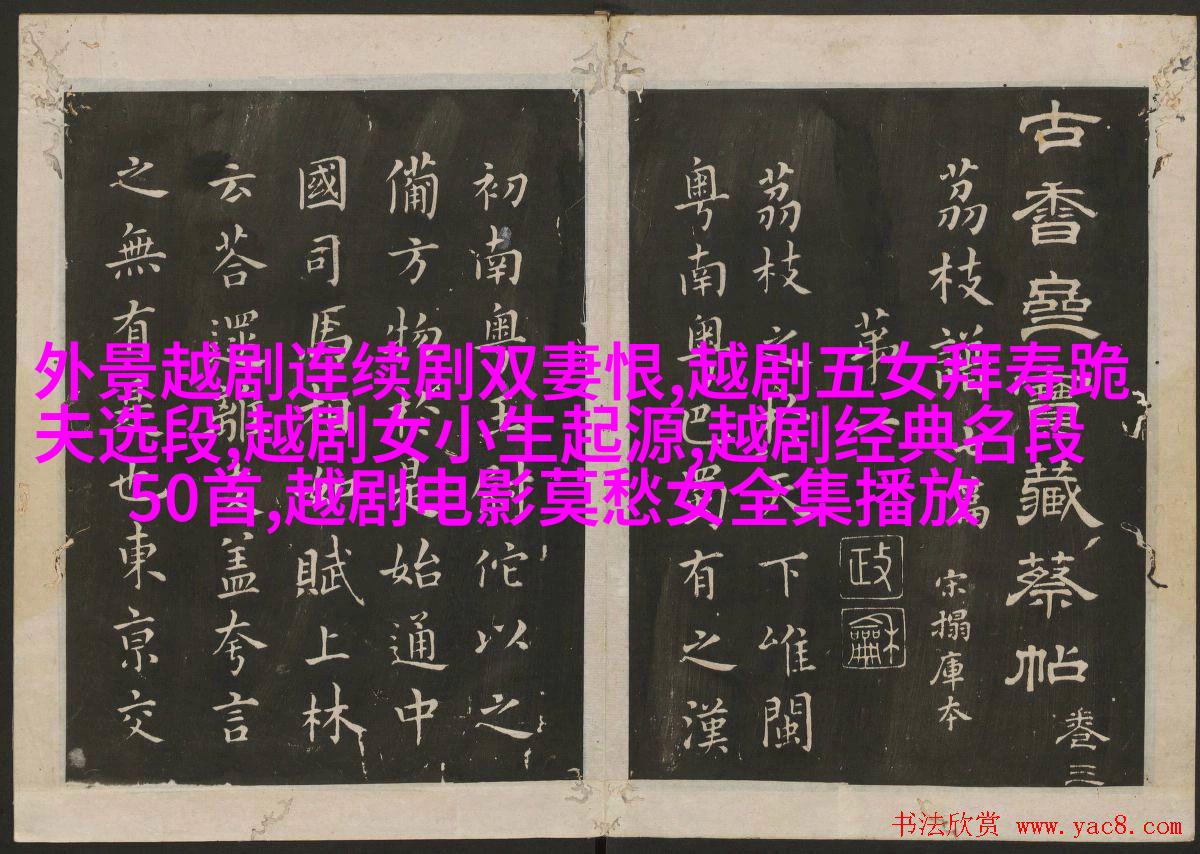 古香齋寶藏蔡帖
卷三
宋搨庫本
荔枝譜七篇
第一
政龢
荔枝之於天下唯閩
粤南粤巴蜀有之漢
初南粤王尉佗以之
備方物於是始通中
國司馬相如賦上林
云荅遝離支盖夸言
之無有是也東京交
外景越剧连续剧双妻恨,越剧五女拜寿跪
夫选段,越剧女小生起源,越剧经典名段
50首,越剧电影莫愁女全集播放
书法欣赏 www.yac8.com